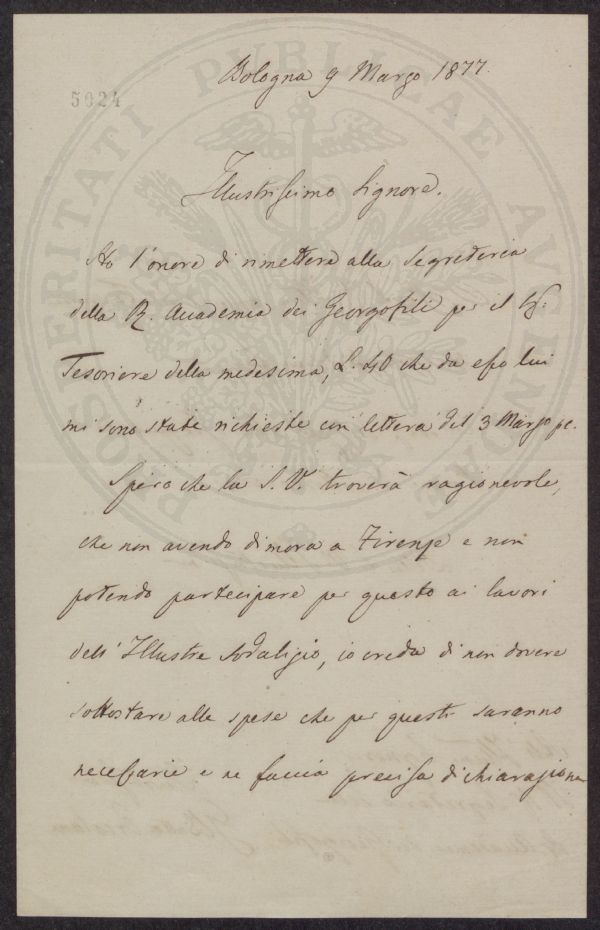 Bologna 9 Marzo 1877.
5024
Illustrissimo Signore.
Ho l'onore di rimettere alla Segreteria
della R. Accademia dei Georgofili per il
Tesoriere della medesima, L. 40 che da esso lui
mi sono state richieste con lettera del 3 Marzo pc.
Spero che la S. V. troverà ragionevole,
che non avendo dimora a Firenze e non
potendo partecipare per questo ai lavori
dell'Illustre Sodalizio, io creda di non dovere
sottostare alle spese che per questi saranno
necessarie e ne faccia precisa dichiarazione
PROSPERITATI PUBLICAE AUGENDAE